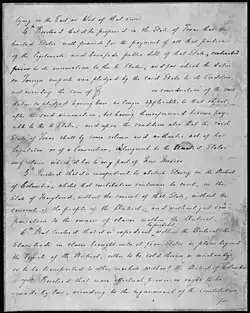 lying on the East or West of that river.
4th Resolved that it be proposed to the State of Texas that the
United States will provide for the payment of all that portion
of the legitimate and bona fide public debt of that State, contracted
prior to its annexation to the U. States, and for which the duties
on foreign imports were pledged by the said State to its Creditors,
not exceeding the sum of $ in consideration of the said
duties so pledged having been no longer applicable to that object,
after the said annexation, but having thenceforward become pay-
able to the U States; and upon the condition also that the said
State of Texas shall by some solemn and authentic act of her
legislature or of a Convention, relinquish to the United States
any claim which it has to any part of New Mexico
5th Resolved that it is inexpedient to abolish Slavery in the District
of Columbia, whilst that institution continues to exist in the
State of Maryland, without the consent of that State, without the
consent of the people of the District, and without just com-
pensation to the owners of slaves within the District.
6th But Resolved that it is expedient to prohibit within the District the
Slave trade in slaves brought into it from States or places beyond
the limits of the District, either to be sold therein as merchandize,
or to be transported to other markets without the District of Columbia
7th Resolved that more effectual provision ought to be
made by law, according to the requirement of the constitution,
for